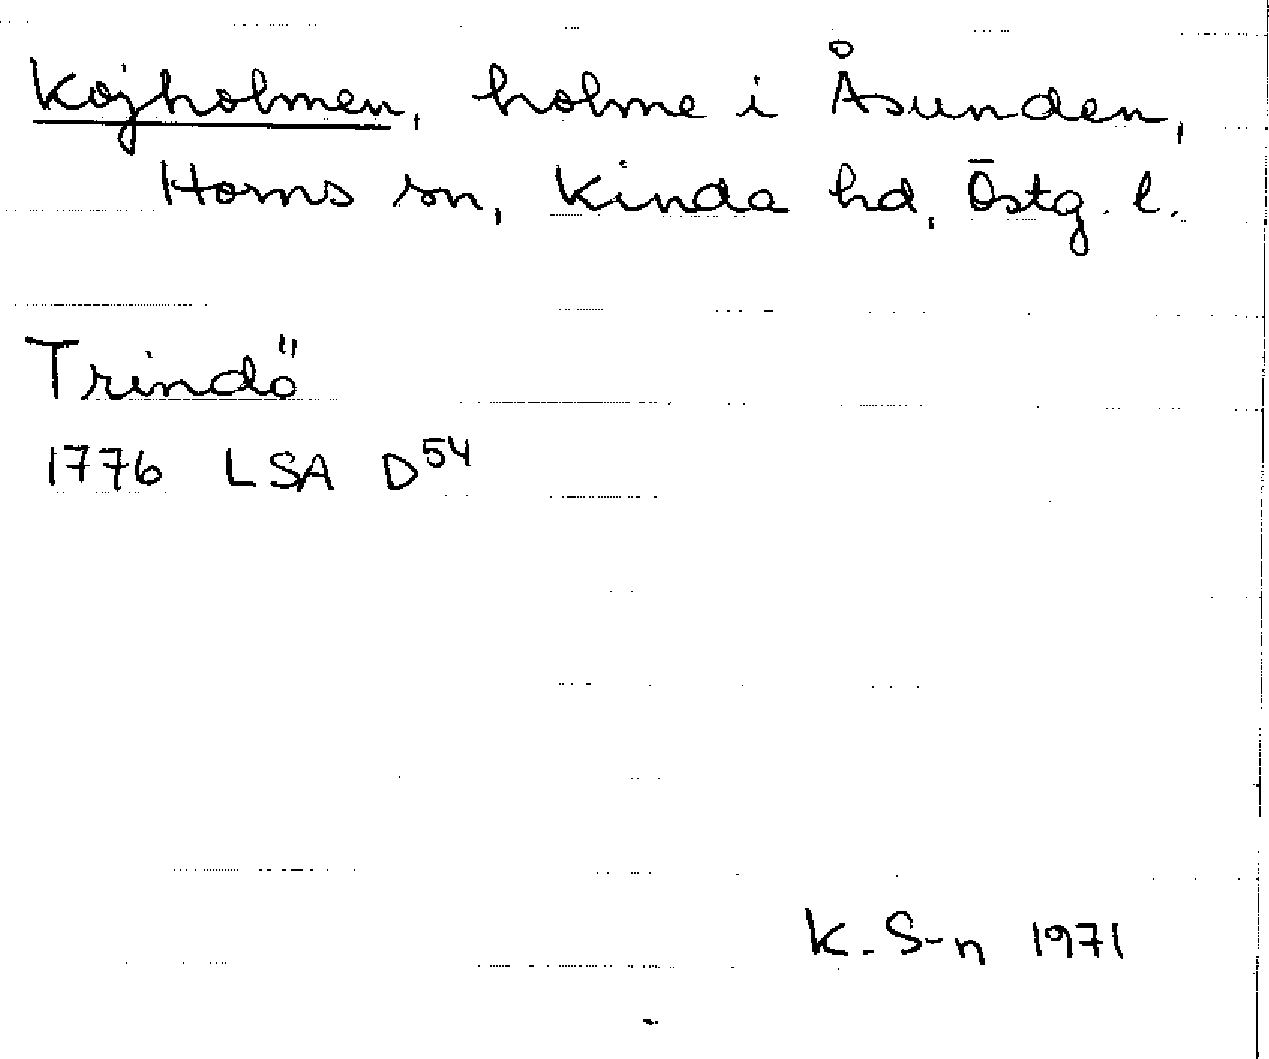 Kojholmen, holme i Åsunden,
Horns sn, Kinda hd, Östg. l.
Trindö
1776 LSA D54
K. S-n 1971